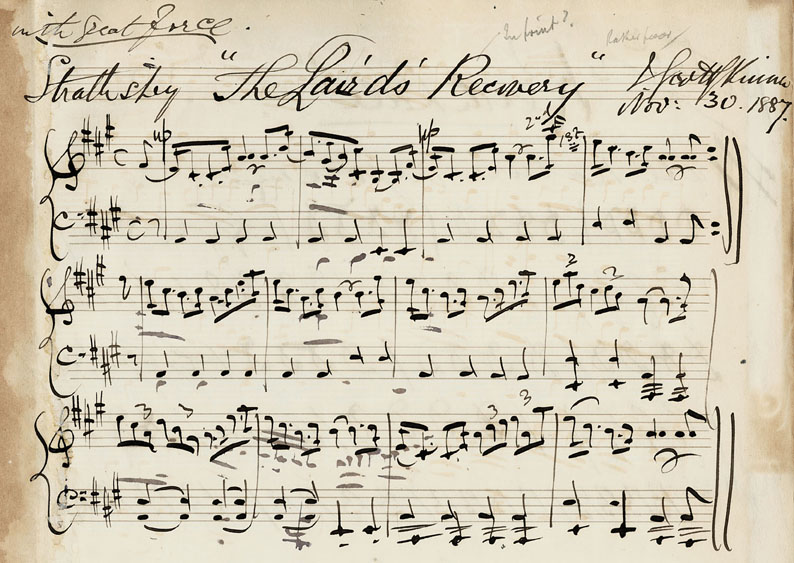 with great force.
In print? Rather poor
Strathspey "The Laird's Recovery" J Scott Skinner
Nov: 30. 1887.
up
up
2nd
1st
3
2
3 3
3
3